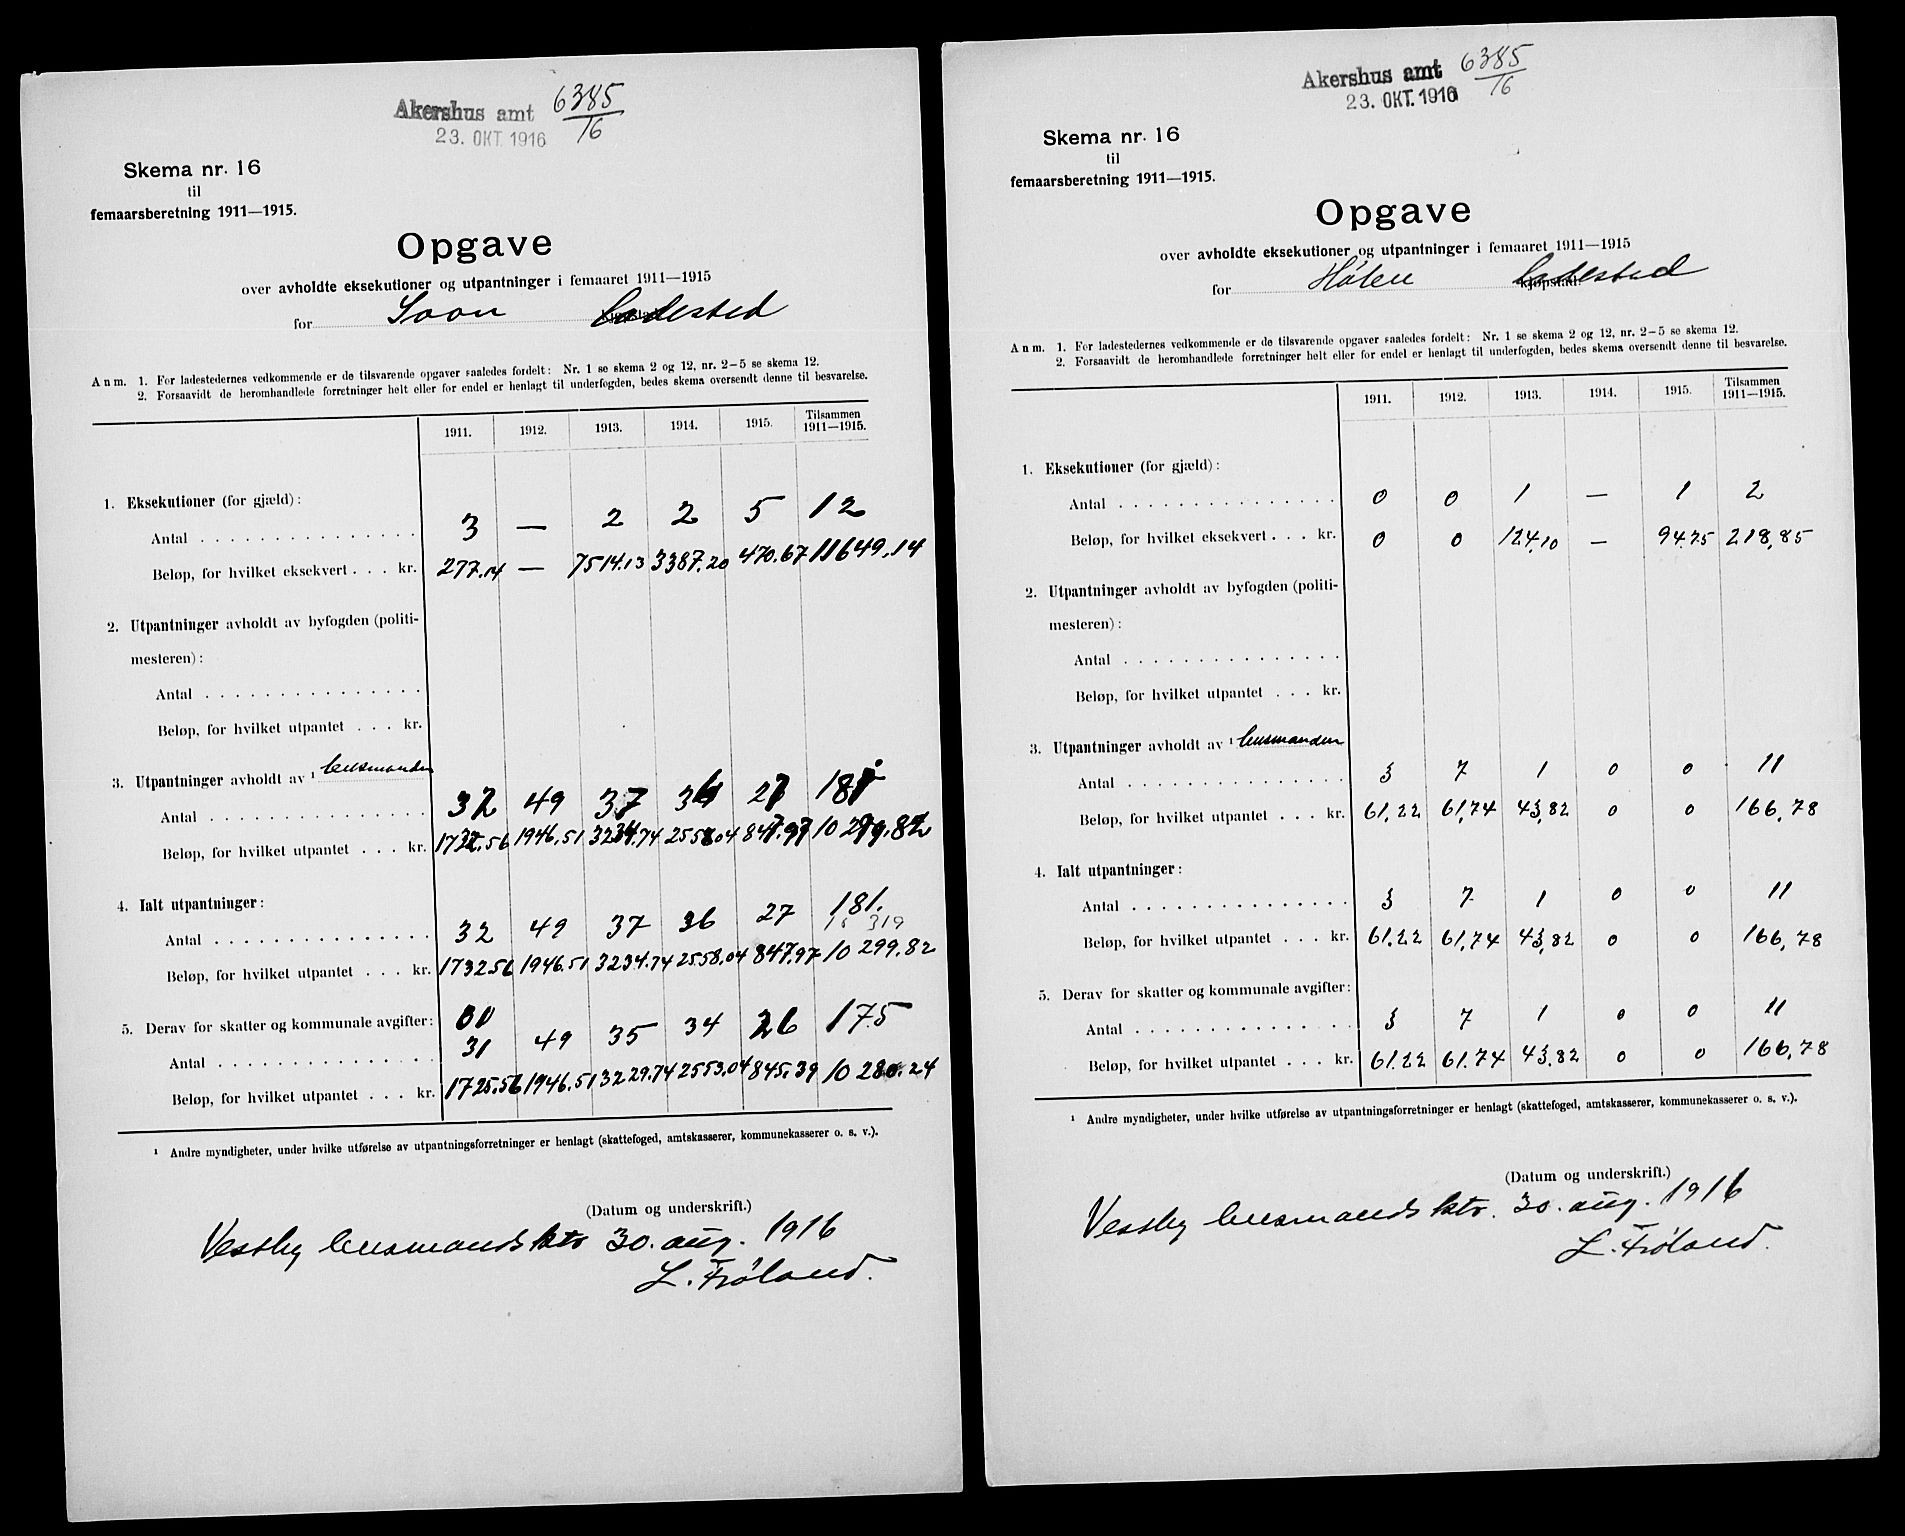 Akershus amt 6385/16
23. OKT. 1916
Skema nr. 16
til
femaarsberetning 1911—1915.
Opgave
over avholdte eksekutioner og utpantninger i femaaret 1911—1915
for Soon Ladested
Anm. 1. For ladestedernes vedkommende er de tilsvarende opgaver saaledes fordelt: Nr. 1 se skema 2 og 12, nr. 2–5 se skema 12.
2. Forsaavidt de heromhandlede forretninger helt eller for endel er henlagt til underfogden, bedes skema oversendt denne til besvarelse.
1911. 1912. 1913. 1914. 1915. Tilsammen 1911—1915.
1. Eksekutioner (for gjæld):
Antal . . . 3 — 2 2 5 12
Beløp, for hvilket eksekvert . . . kr. 277.14 — 7514.13 3387.20 470.67 11649.14
2. Utpantninger avholdt av byfogden (politi-
mesteren):
Antal . . .
Beløp, for hvilket utpantet . . . kr.
3. Utpantninger avholdt av ¹ lensmanden
Antal . . . 32 49 37 36 27 181
Beløp, for hvilket utpantet . . . kr. 1732.56 1946.51 3234.74 2558.04 847.97 10 299.82
4. Ialt utpantninger:
Antal . . . 32 49 37 36 27 181.
Beløp, for hvilket utpantet . . . kr. 1732.56 1946.51 3234.74 2558.04 847.97 10 299.82
5. Derav for skatter og kommunale avgifter:
Antal . . . 31 49 35 34 26 175
Beløp, for hvilket utpantet . . . kr. 1725.56 1946.51 3229.74 2553.04 845.39 10 280.24
¹ Andre myndigheter, under hvilke utførelse av utpantningsforretninger er henlagt (skattefoged, amtskasserer, kommunekasserer o. s. v.).
(Datum og underskrift.)
Vestby lensmandsktr 30. aug. 1916
L. Frøland.
Akershus amt 6385/16
23. OKT. 1916
Skema nr. 16
til
femaarsberetning 1911—1915.
Opgave
over avholdte eksekutioner og utpantninger i femaaret 1911—1915
for Hølen kjøpstad Ladested
Anm. 1. For ladestedernes vedkommende er de tilsvarende opgaver saaledes fordelt: Nr. 1 se skema 2 og 12, nr. 2–5 se skema 12.
2. Forsaavidt de heromhandlede forretninger helt eller for endel er henlagt til underfogden, bedes skema oversendt denne til besvarelse.
1911. 1912. 1913. 1914. 1915. Tilsammen 1911—1915.
1. Eksekutioner (for gjæld):
Antal . . . 0 0 1 — 1 2
Beløp, for hvilket eksekvert . . . kr. 0 0 124,10 — 94.75 218,85
2. Utpantninger avholdt av byfogden (politi-
mesteren):
Antal . . .
Beløp, for hvilket utpantet . . . kr.
3. Utpantninger avholdt av ¹ lensmanden
Antal . . . 3 7 1 0 0 11
Beløp, for hvilket utpantet . . . kr. 61,22 61,74 43,82 0 0 166,78
4. Ialt utpantninger:
Antal . . . 3 7 1 0 0 11
Beløp, for hvilket utpantet . . . kr. 61.22 61,74 43,82 0 0 166,78
5. Derav for skatter og kommunale avgifter:
Antal . . . 3 7 1 0 0 11
Beløp, for hvilket utpantet . . . kr. 61.22 61.74 43.82 0 0 166,78
¹ Andre myndigheter, under hvilke utførelse av utpantningsforretninger er henlagt (skattefoged, amtskasserer, kommunekasserer o. s. v.).
(Datum og underskrift.)
Vestby lensmandsktr. 30. aug. 1916
L. Frøland.